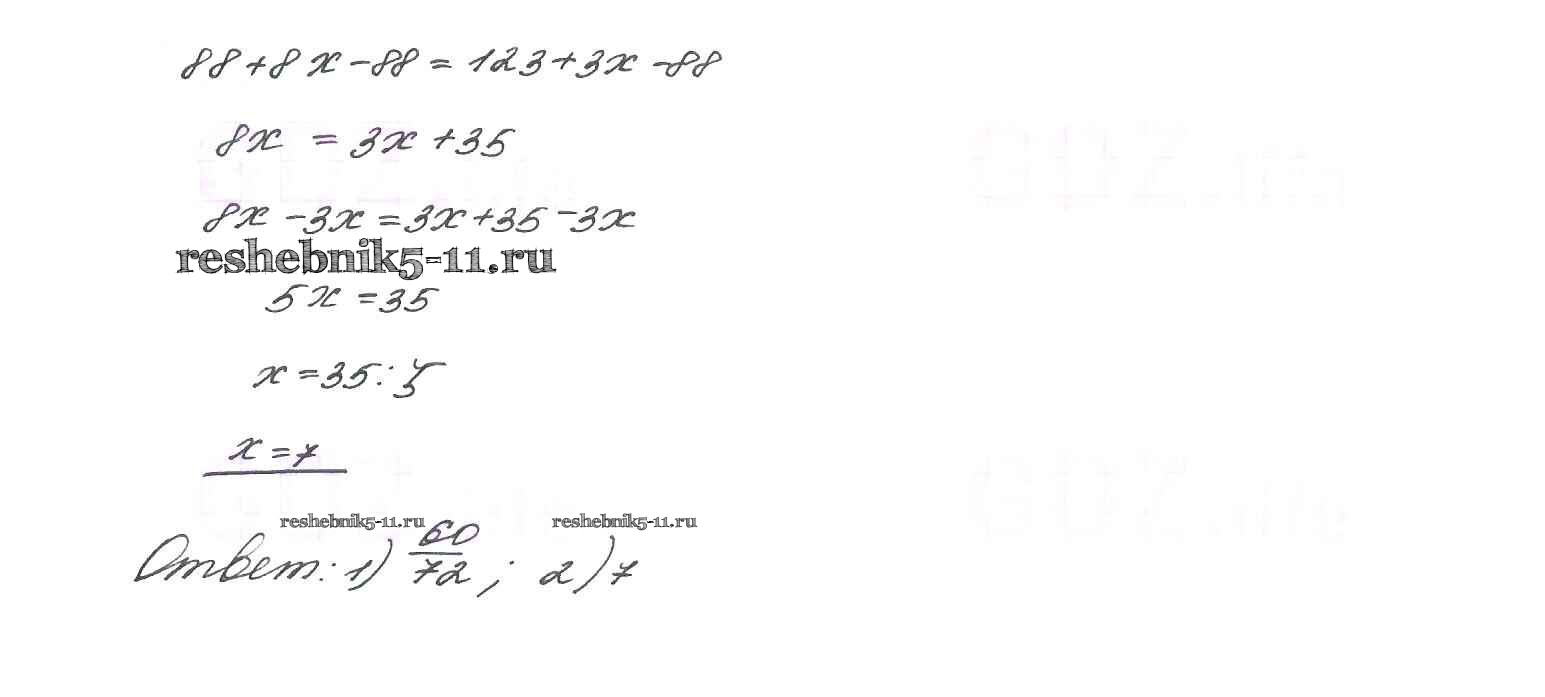 88+8x-88=123+3x-88
8x = 3x+35
8x-3x=3x+35-3x
reshebnik5-11.ru
5x=35
x=35:5
x=7
reshebnik5-11.ru reshebnik5-11.ru
Ответ: 1) 60/72; 2) 7